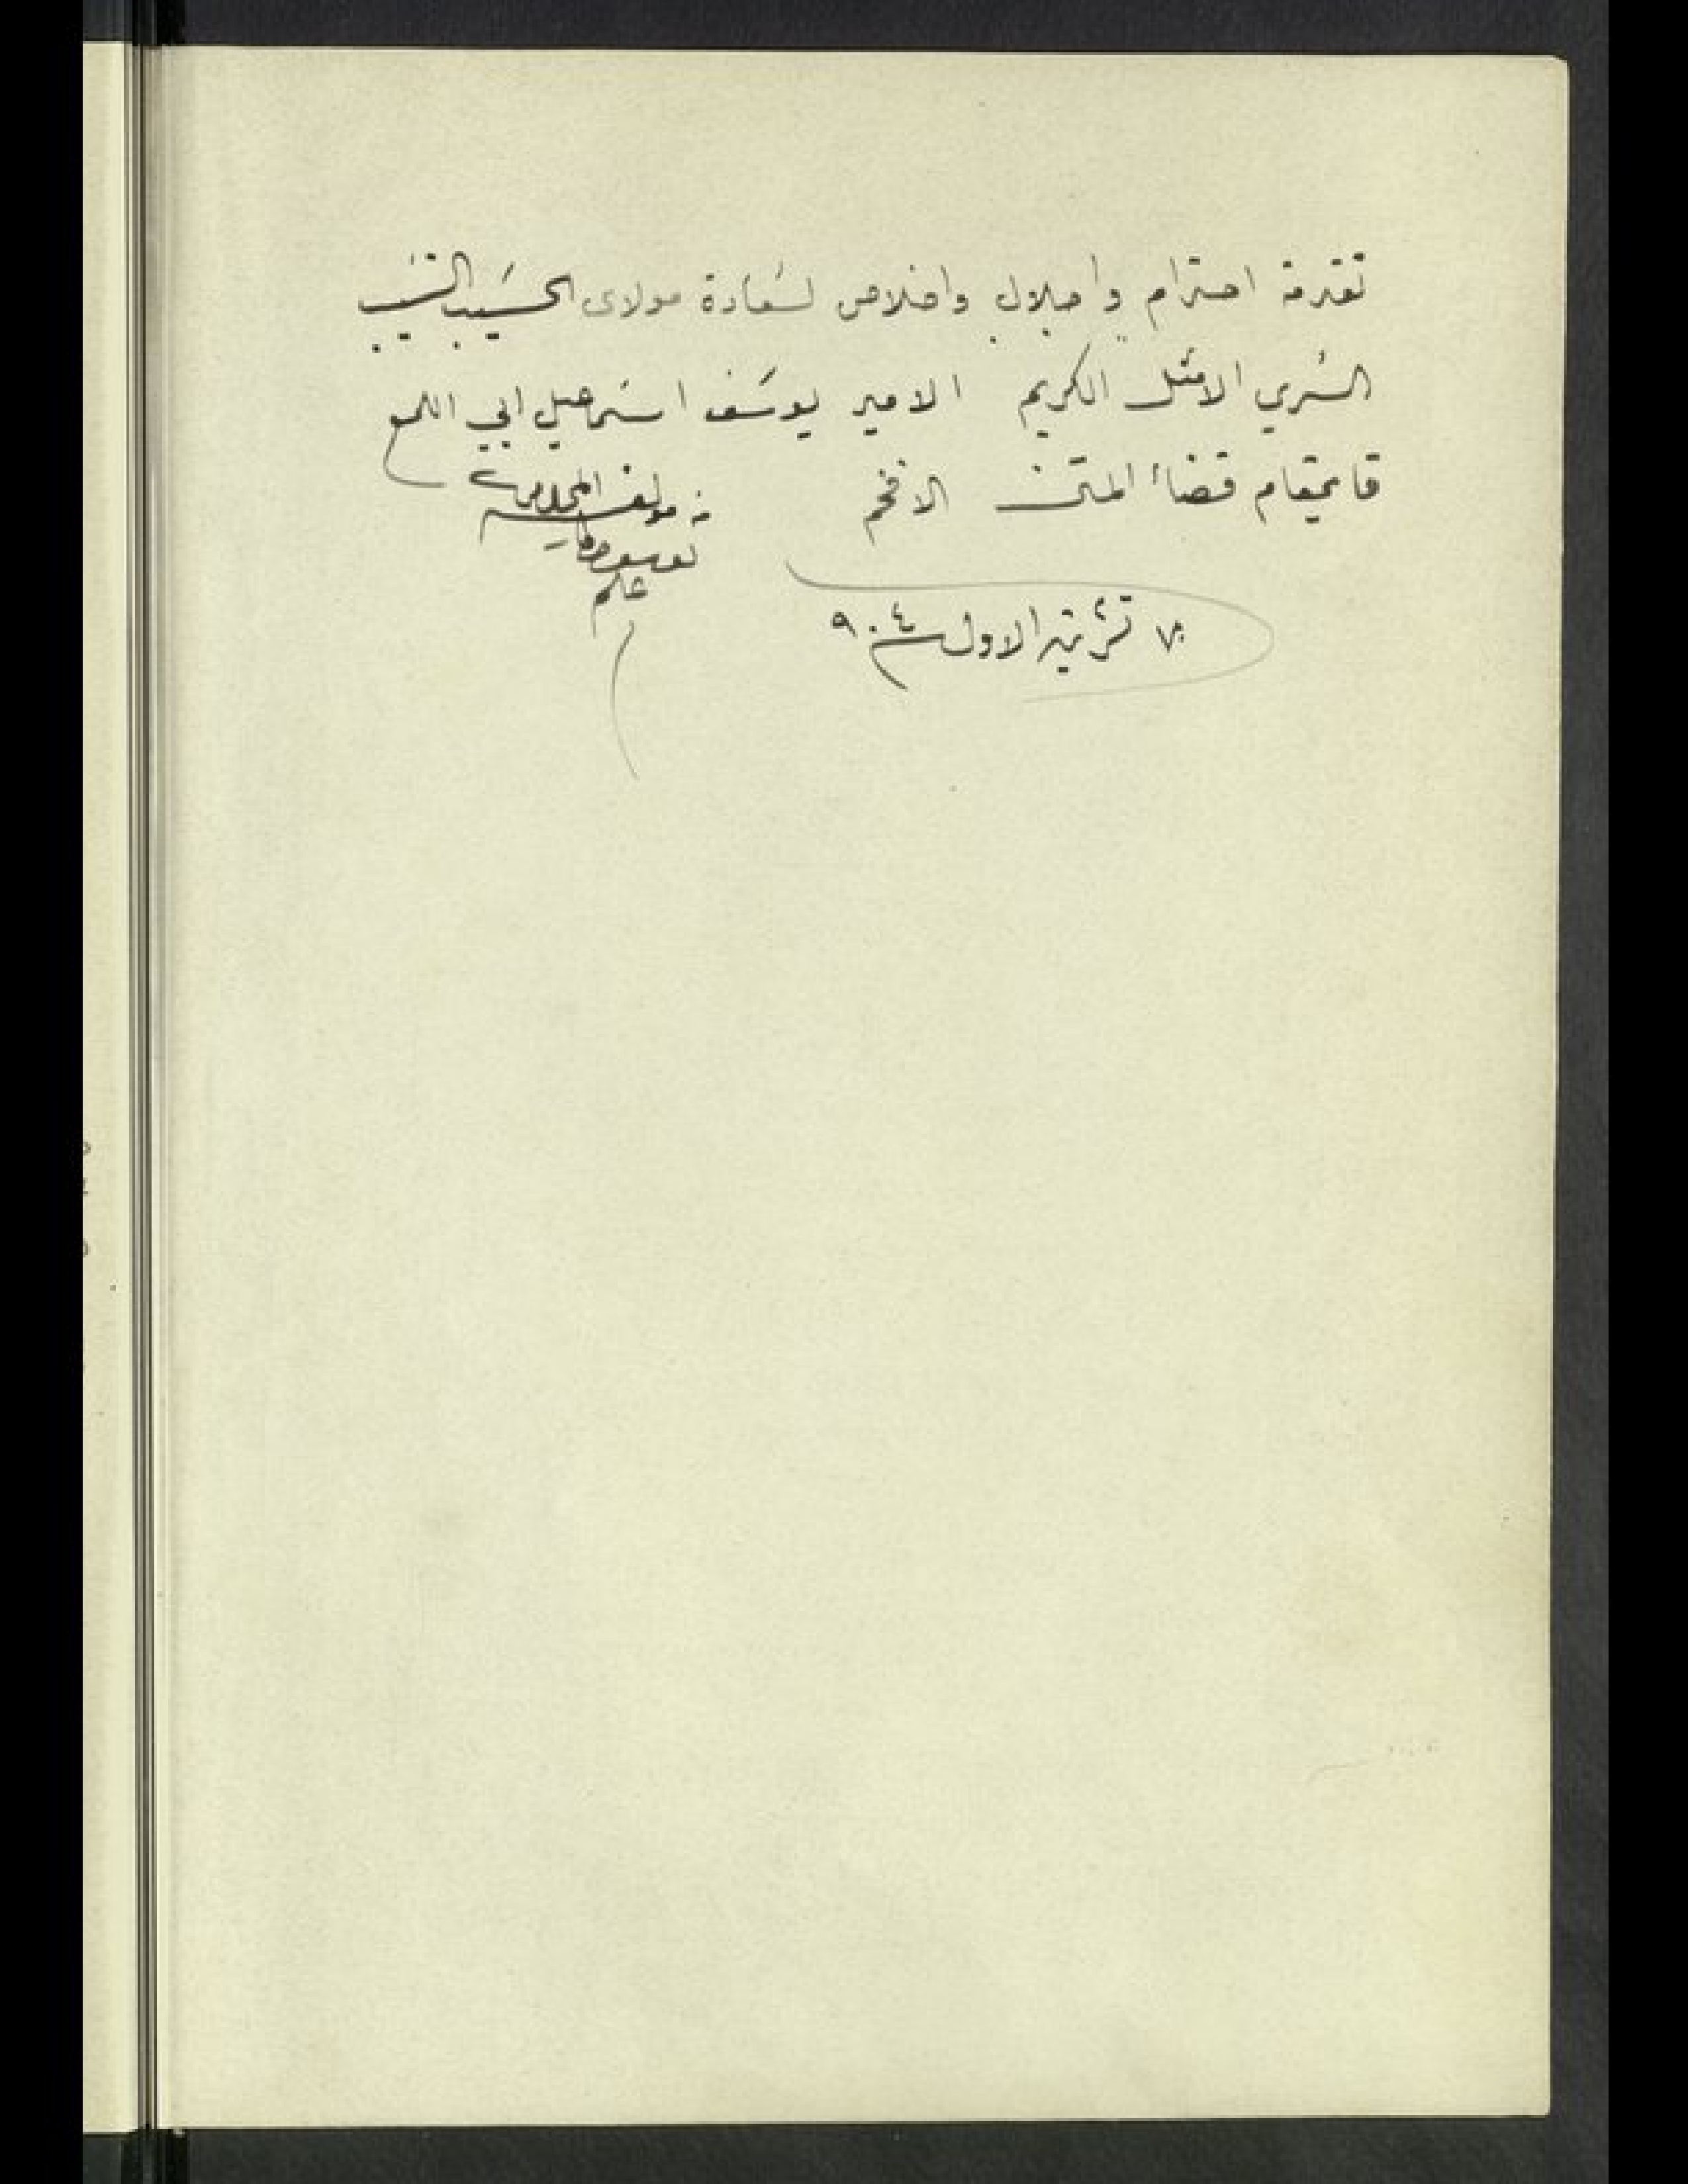 تقدمة احترام واجلال واخلاص لسعادة مولاى الحسيب النسيب
السري الامثل الكريم الامير يوسف اسماعيل ابي اللمع
قايمقام قضاء المتن الافخم
من مولفه المخلص
٧ تشرين الاول سنة ٩٠٤